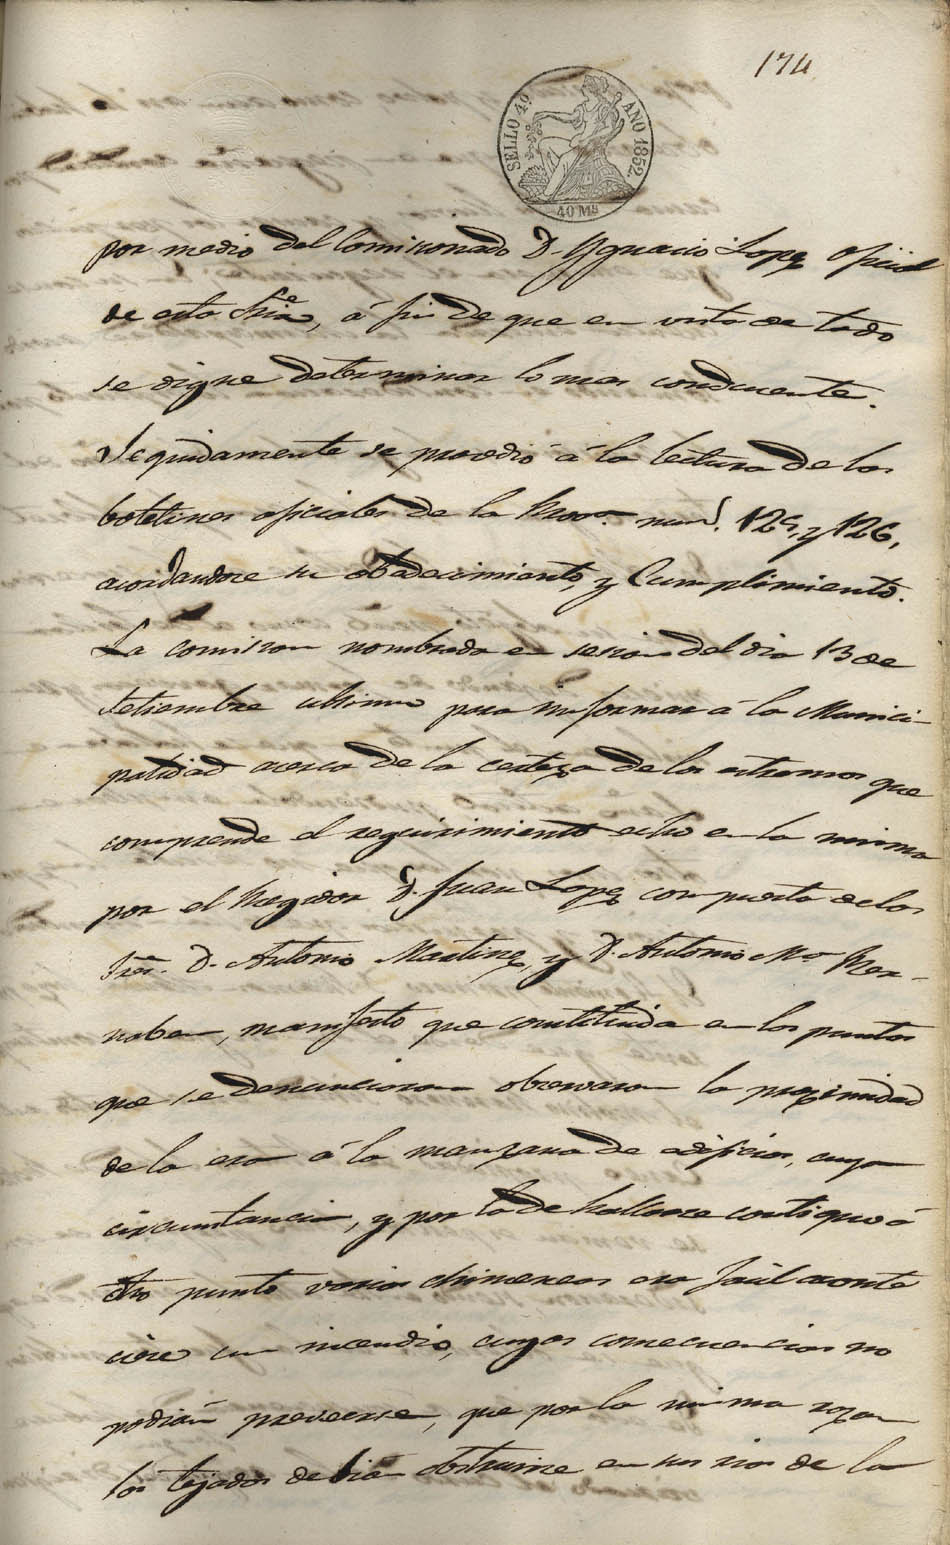 174
SELLO 4º AÑO 1852.
40 Ms
por medio del Comisionado D. Ygnacio Lopez oficial
de esta Sria, á fin de que en vista de todo
se digne determinar lo mas conducente.
Seguidamente se procedió á la lectura de los
boletines oficiales de la Prova. nums. 125, y 126,
acordandose su obedecimiento, y Cumplimiento.
La comision nombrada en sesion del dia 13 de
Setiembre ultimo para informar á la Munici-
palidad acerca de la certeza de los estremos que
comprende el requirimiento echo en la misma
por el Regidor D. Juan Lopez compuesta de los
Sres. D. Antonio Martinez, y D. Antonio Mª Ber-
nabeu, manifesto que constituida en los puntos
que se denunciaron observaron la proximidad
de la era á la manzana de edificios, cuya
circunstancia, y por la de hallarse contiguo á
dho punto varias chimeneas era facil aconte
ciere un incendio, cuyas consecuencias no
podian preveerse, que por la misma razon
los tejados debian obstruirse en sus rios de la